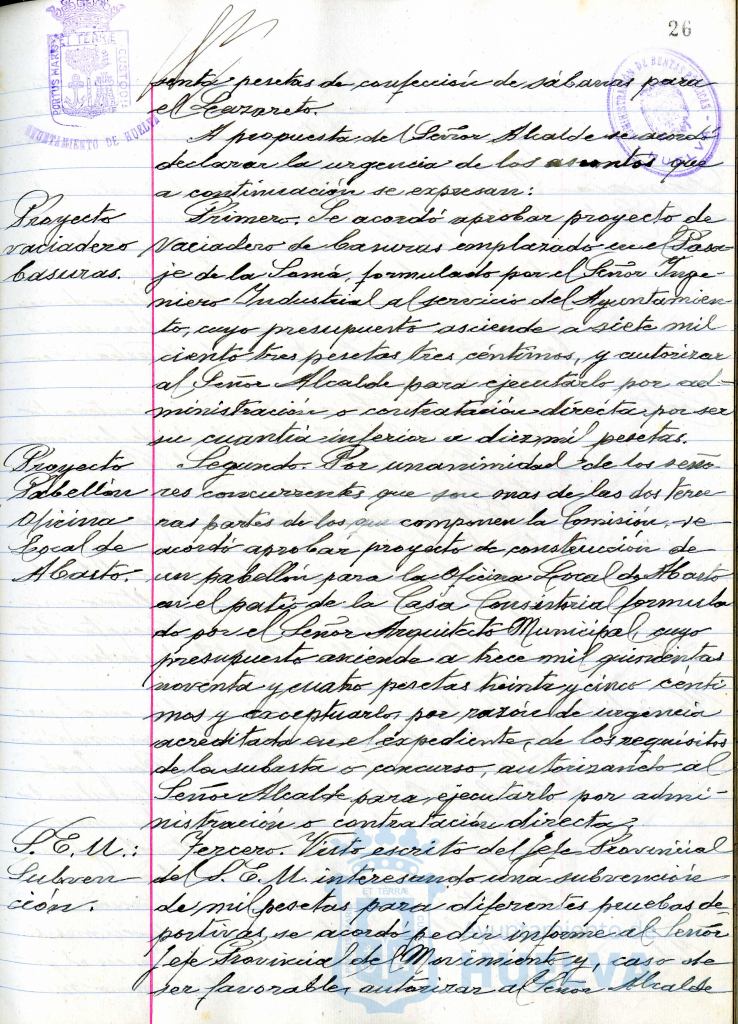 26
PORTUS MARIS ET TERRÆ CUSTODIA
AYUNTAMIENTO DE HUELVA
ADMINISTRACIÓN DE RENTAS PÚBLICAS - HUELVA
senta pesetas de confección de sábanas para
el Lazareto.
A propuesta del Señor Alcalde se acordó
declarar la urgencia de los asuntos que
a continuación se expresan:
Proyecto
vaciadero
basuras.
Primero. Se acordó aprobar proyecto de
vaciadero de basuras emplazado en el Pasa-
je de la Samá, formulado por el Señor Inge-
niero Industrial al servicio del Ayuntamien-
to, cuyo presupuesto asciende a siete mil
ciento tres pesetas tres céntimos, y autorizar
al Señor Alcalde para ejecutarlo por ad-
ministración o contratación directa, por ser
su cuantía inferior a diez mil pesetas.
Proyecto
Pabellón
Oficina
Local de
Abasto.
Segundo. Por unanimidad de los seño-
res concurrentes que son mas de las dos terce-
ras partes de los que componen la Comisión, se
acordó aprobar proyecto de construcción de
un pabellón para la Oficina Local de Abasto
en el patio de la Casa Consistorial formula
do por el Señor Arquitecto Municipal, cuyo
presupuesto asciende a trece mil quinientas
noventa y cuatro pesetas treinta y cinco cénti-
mos y exceptuarlo, por razón de urgencia
acreditada en el expediente, de los requisitos
de la subasta o concurso, autorizando al
Señor Alcalde para ejecutarlo por admi-
nistración o contratación directa;
S. E. U.:
Subven-
ción.
Tercero. Visto escrito del Jefe Provincial
del S. E. U. interesando una subvención
de mil pesetas para diferentes pruebas de-
portivas, se acordó pedir informe al Señor
Jefe Provincial del Movimiento y, caso de
ser favorable, autorizar al Señor Alcalde
ET TERRÆ
Ayuntamiento de
HUELVA